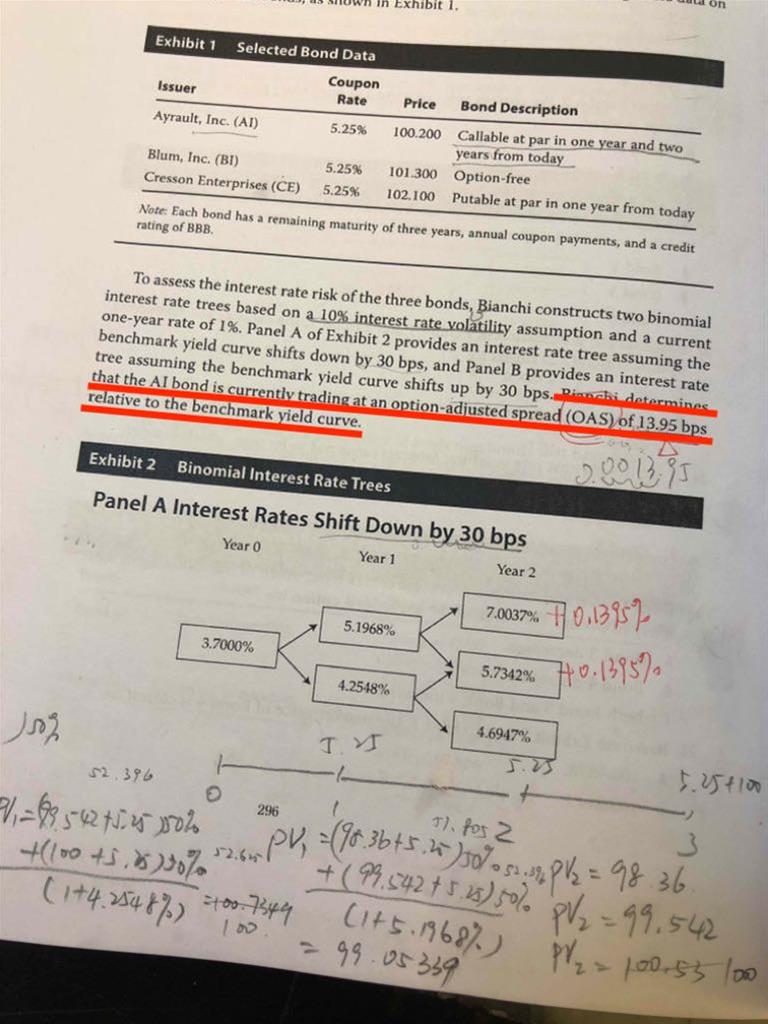 shown in Exhibit 1.
Exhibit 1 Selected Bond Data
Issuer Coupon Rate Price Bond Description
Ayrault, Inc. (AI) 5.25% 100.200 Callable at par in one year and two years from today
Blum, Inc. (BI) 5.25% 101.300 Option-free
Cresson Enterprises (CE) 5.25% 102.100 Putable at par in one year from today
Note: Each bond has a remaining maturity of three years, annual coupon payments, and a credit
rating of BBB.
To assess the interest rate risk of the three bonds, Bianchi constructs two binomial
interest rate trees based on a 10% interest rate volatility assumption and a current
one-year rate of 1%. Panel A of Exhibit 2 provides an interest rate tree assuming the
benchmark yield curve shifts down by 30 bps, and Panel B provides an interest rate
tree assuming the benchmark yield curve shifts up by 30 bps. Bianchi determines
that the AI bond is currently trading at an option-adjusted spread (OAS) of 13.95 bps
relative to the benchmark yield curve.
0.001395
Exhibit 2 Binomial Interest Rate Trees
Panel A Interest Rates Shift Down by 30 bps
Year 0 Year 1 Year 2
7.0037% + 0.1395%
5.1968%
3.7000%
5.7342% + 0.1395%
4.2548%
4.6947%
5.25 5.25 5.25+100
52.396
0 1 2 3
296
PV1 = (99.542+5.25)50%
+(100+5.25)50%
(1+4.2548%)
=100.7349
100
52.625
PV1 = (98.36+5.25)50%
+(99.542+5.25)50%
(1+5.1968%)
= 99.05339
PV2 = 98.36
PV2 = 99.542
PV2 = 100.53 100